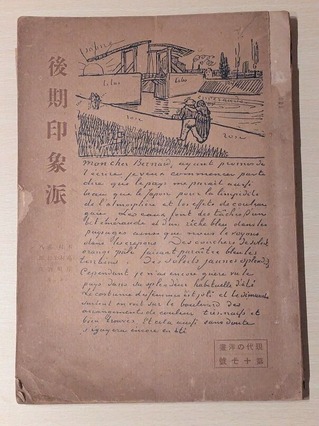 後期印象派
lilas
lilas
rose
rose
mon cher Bernard, ayant promis de
t'écrire je veux commencer par te
dire que le pays me parait aussi
beau que le Japon pour la limpidité
de l'atmosphère et les effets de couleur
gaie. Les eaux font des taches d'un
bel émeraude et d'un riche bleu dans les
paysages ainsi que nous le voyons
dans les crepons. Des couchers de soleil
orangé pale faisant paraitre bleu les
terrains. Des soleils jaunes splendides.
Cependant je n'ai encore guère vu le
pays dans sa splendeur habituelle d'été
Le costume des femmes est joli et le dimanche
surtout on voit sur le boulevard des
arrangements de couleur très naïfs et
bien trouvés. Et cela aussi sans doute
s'égayera encore en été
現代の洋畫
號七十第